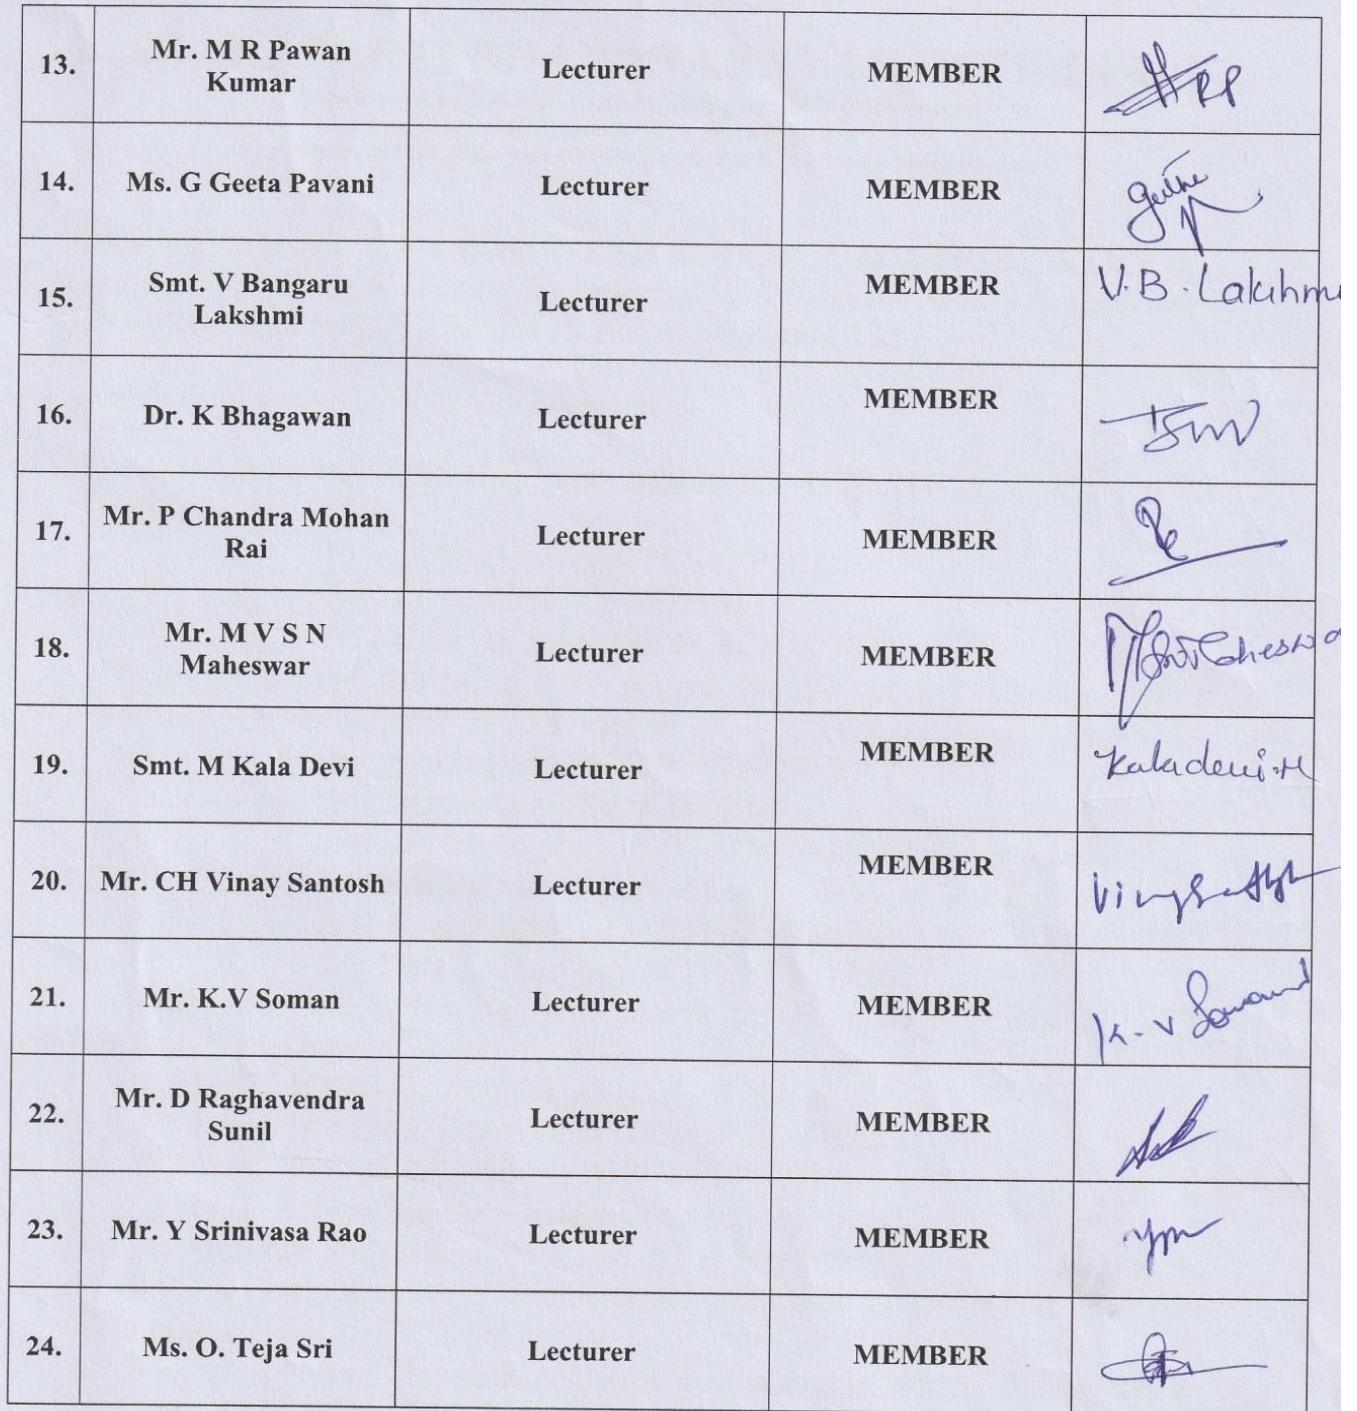 13. Mr. M R Pawan Lecturer MEMBER
Kumar
14. Ms. G Geeta Pavani Lecturer MEMBER
15. Smt. V Bangaru Lecturer MEMBER V.B. Lakshmi
Lakshmi
16. Dr. K Bhagawan Lecturer MEMBER
17. Mr. P Chandra Mohan Lecturer MEMBER
Rai
18. Mr. M V S N Lecturer MEMBER
Maheswar
19. Smt. M Kala Devi Lecturer MEMBER Kaladevi.M
20. Mr. CH Vinay Santosh Lecturer MEMBER
21. Mr. K.V Soman Lecturer MEMBER
22. Mr. D Raghavendra Lecturer MEMBER
Sunil
23. Mr. Y Srinivasa Rao Lecturer MEMBER
24. Ms. O. Teja Sri Lecturer MEMBER